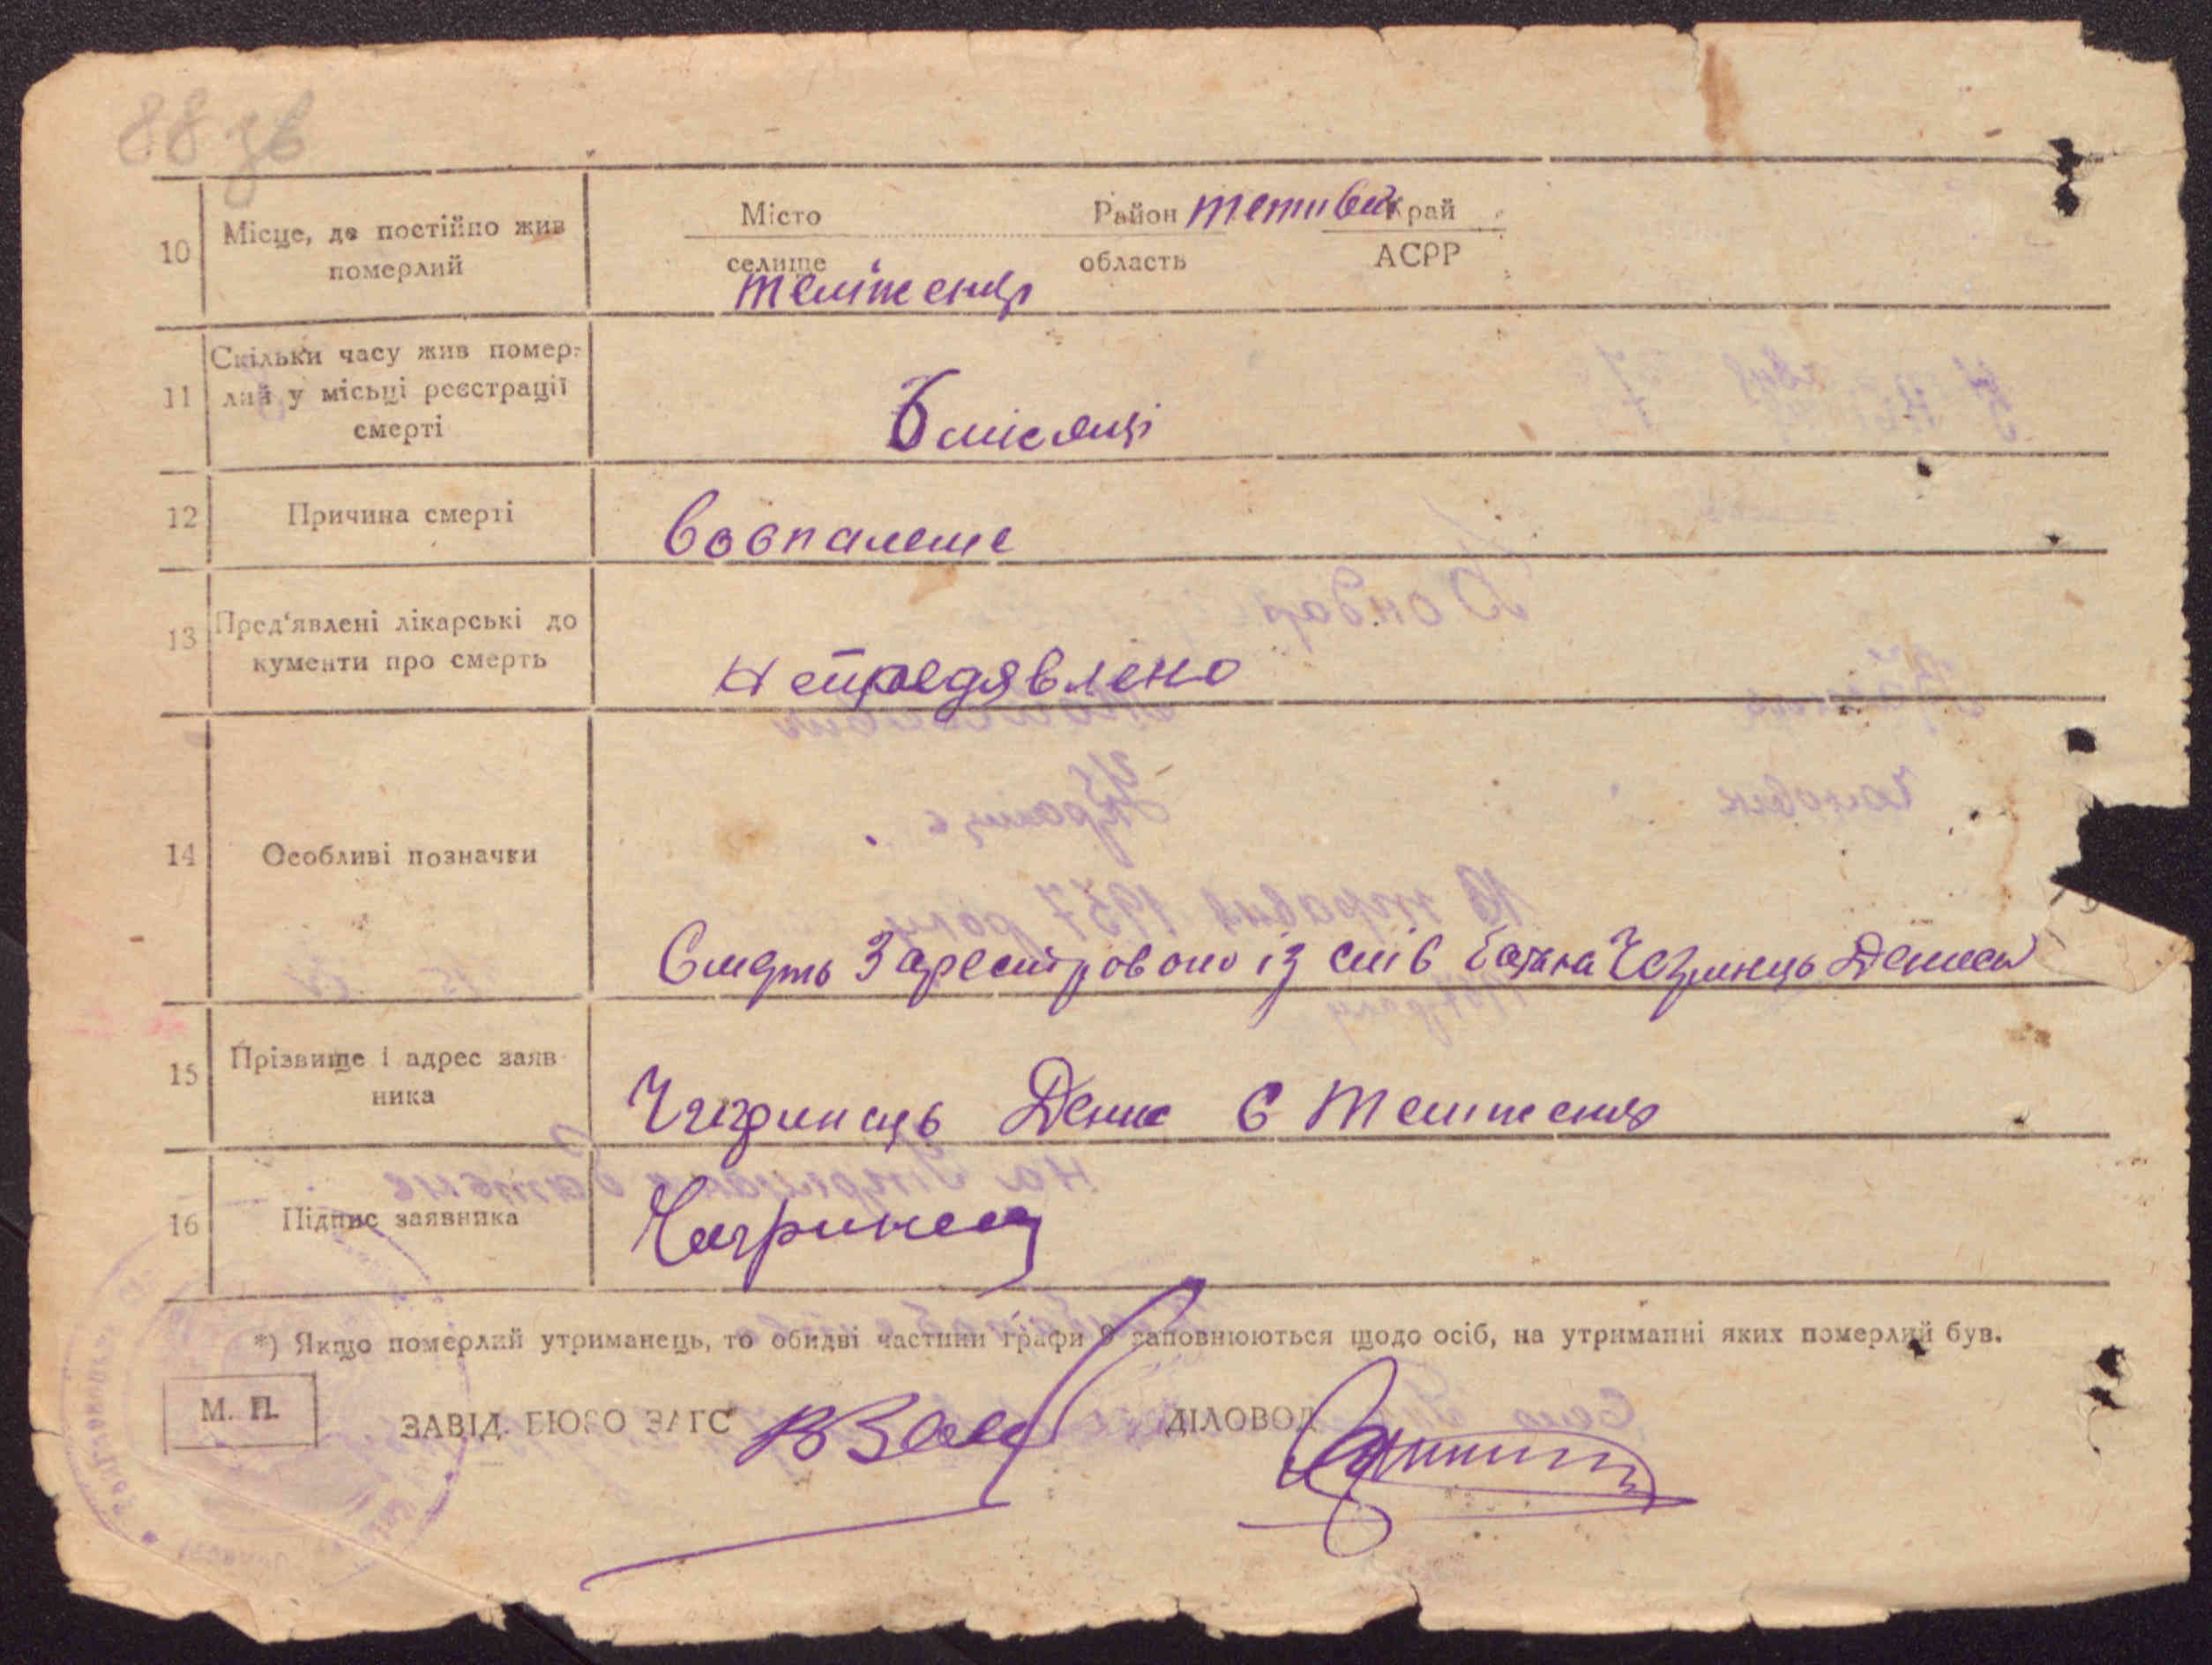 88 зв
10 Місце, де постійно жив Місто Район Тетиїв Край
померлий селище область АСРР
Теліженці
Скільки часу жив помер-
11 лий у місьці реєстрації 6 місяці
смерті
12 Причина смерті Воспаление
13 Пред'явлені лікарські до
кументи про смерть Непредявлено
14 Особливі позначки
Смерть Зарестровоно із слів батька Чегринець Дениса
15 Прізвище і адрес заяв
ника Чигринець Денис С Теліженці
16 Підпис заявника Чигринец
*) Якщо померлий утриманець, то обидві частини графи 9 заповнюються щодо осіб, на утриманні яких померлий був.
М. П. ЗАВІД. БЮРО ЗАГС ДІЛОВОД